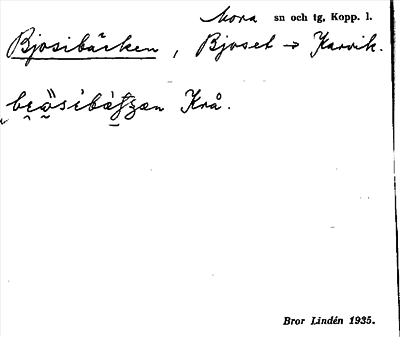 Mora sn och tg, Kopp. l.
Bjosibäcken, Bjoset → Karvik.
Krå.
Bror Lindén 1935.